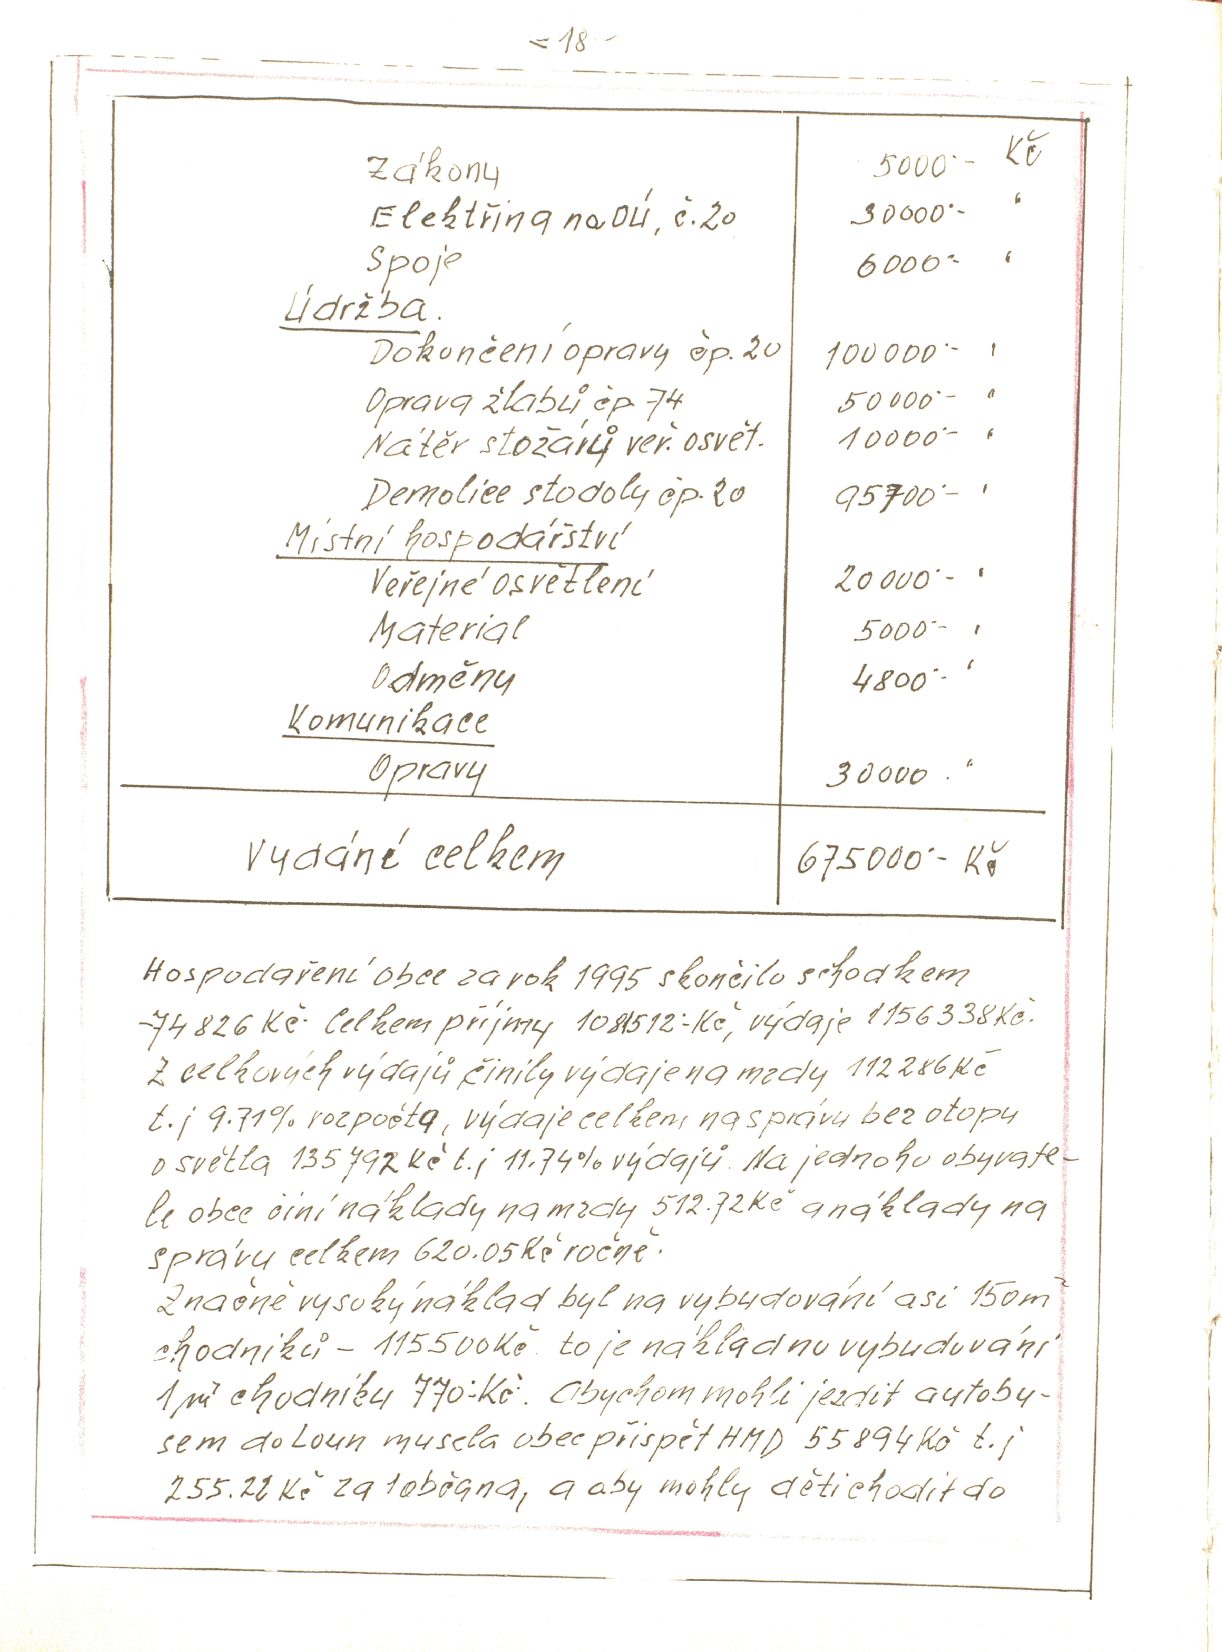 - 18 -
Zákony 5000.- Kč
Elektřina na OÚ, č.20 30000.- "
Spoje 6000.- "
Údržba.
Dokončení opravy čp.20 100000.- "
Oprava žlabů čp 74 50000.- "
Nátěr stožárů veř. osvět. 10000.- "
Demolice stodoly čp.20 95700.- "
Místní hospodářství
Veřejné osvětlení 20000.- "
Material 5000.- "
Odměny 4800.- "
Komunikace
Opravy 30000. "
Vydání celkem 675000.- Kč
Hospodaření obce za rok 1995 skončilo schodkem
-74826 Kč. Celkem příjmy 1081512.-Kč, výdaje 1156338Kč.
Z celkových výdajů činily výdaje na mzdy 112286Kč
t.j 9.71% rozpočta, výdaje celkem na správu bez otopu
o světla 135792Kč t.j 11.74% výdajů. Na jednoho obyvate-
le obce činí náklady na mzdy 512.72Kč a náklady na
správu celkem 620.05Kč ročně.
Značně vysoký náklad byl na vybudování asi 150m²
chodníků - 115500Kč to je náklad na vybudování
1m² chodníku 770.-Kč. Abychom mohli jezdit autobu-
sem do Loun musela obec přispět HMD 55894Kč t.j
255.22Kč za 1občana, a aby mohly děti chodit do